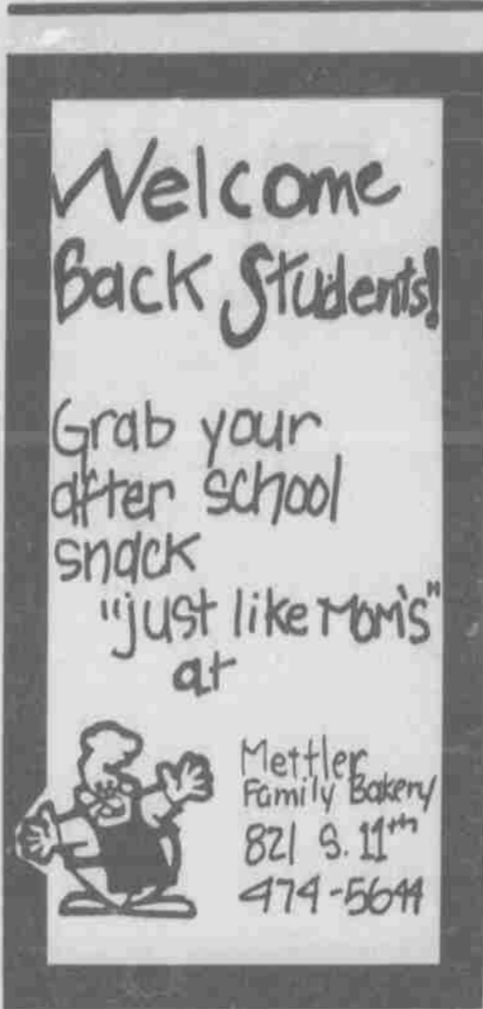 Welcome
Back Students!
Grab your
after school
snack
"just like Mom's"
at
Mettler
Family Bakery
821 S. 11th
474-5644